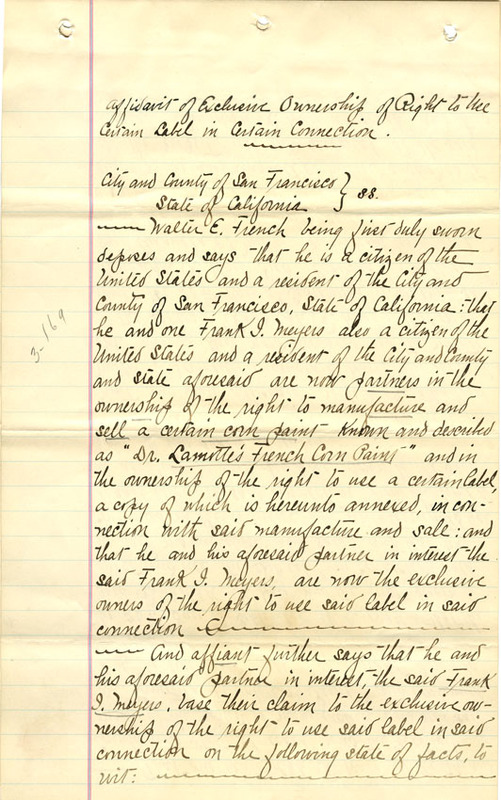 Affidavit of Exclusive Ownership of Right to Use
Certain Label in Certain Connection.
City and County of San Francisco } ss.
State of California
Walter E. French being first duly sworn
deposes and says that he is a citizen of the
United States and a resident of the City and
County of San Francisco, State of California: that
he and one Frank I. Meyers also a citizen of the
United States and a resident of the City and County
and State aforesaid are now partners in the
ownership of the right to manufacture and
sell a certain corn paint known and described
as "Dr. Lamotte's French Corn Paint" and in
the ownership of the right to use a certain label,
a copy of which is hereunto annexed, in con-
nection with said manufacture and sale: and
that he and his aforesaid partner in interest the
said Frank I. Meyers, are now the exclusive
owners of the right to use said label in said
connection
And affiant further says that he and
his aforesaid partner in interest, the said Frank
I. Meyers, base their claim to the exclusive ow-
nership of the right to use said label in said
connection on the following state of facts, to
wit:
3-169